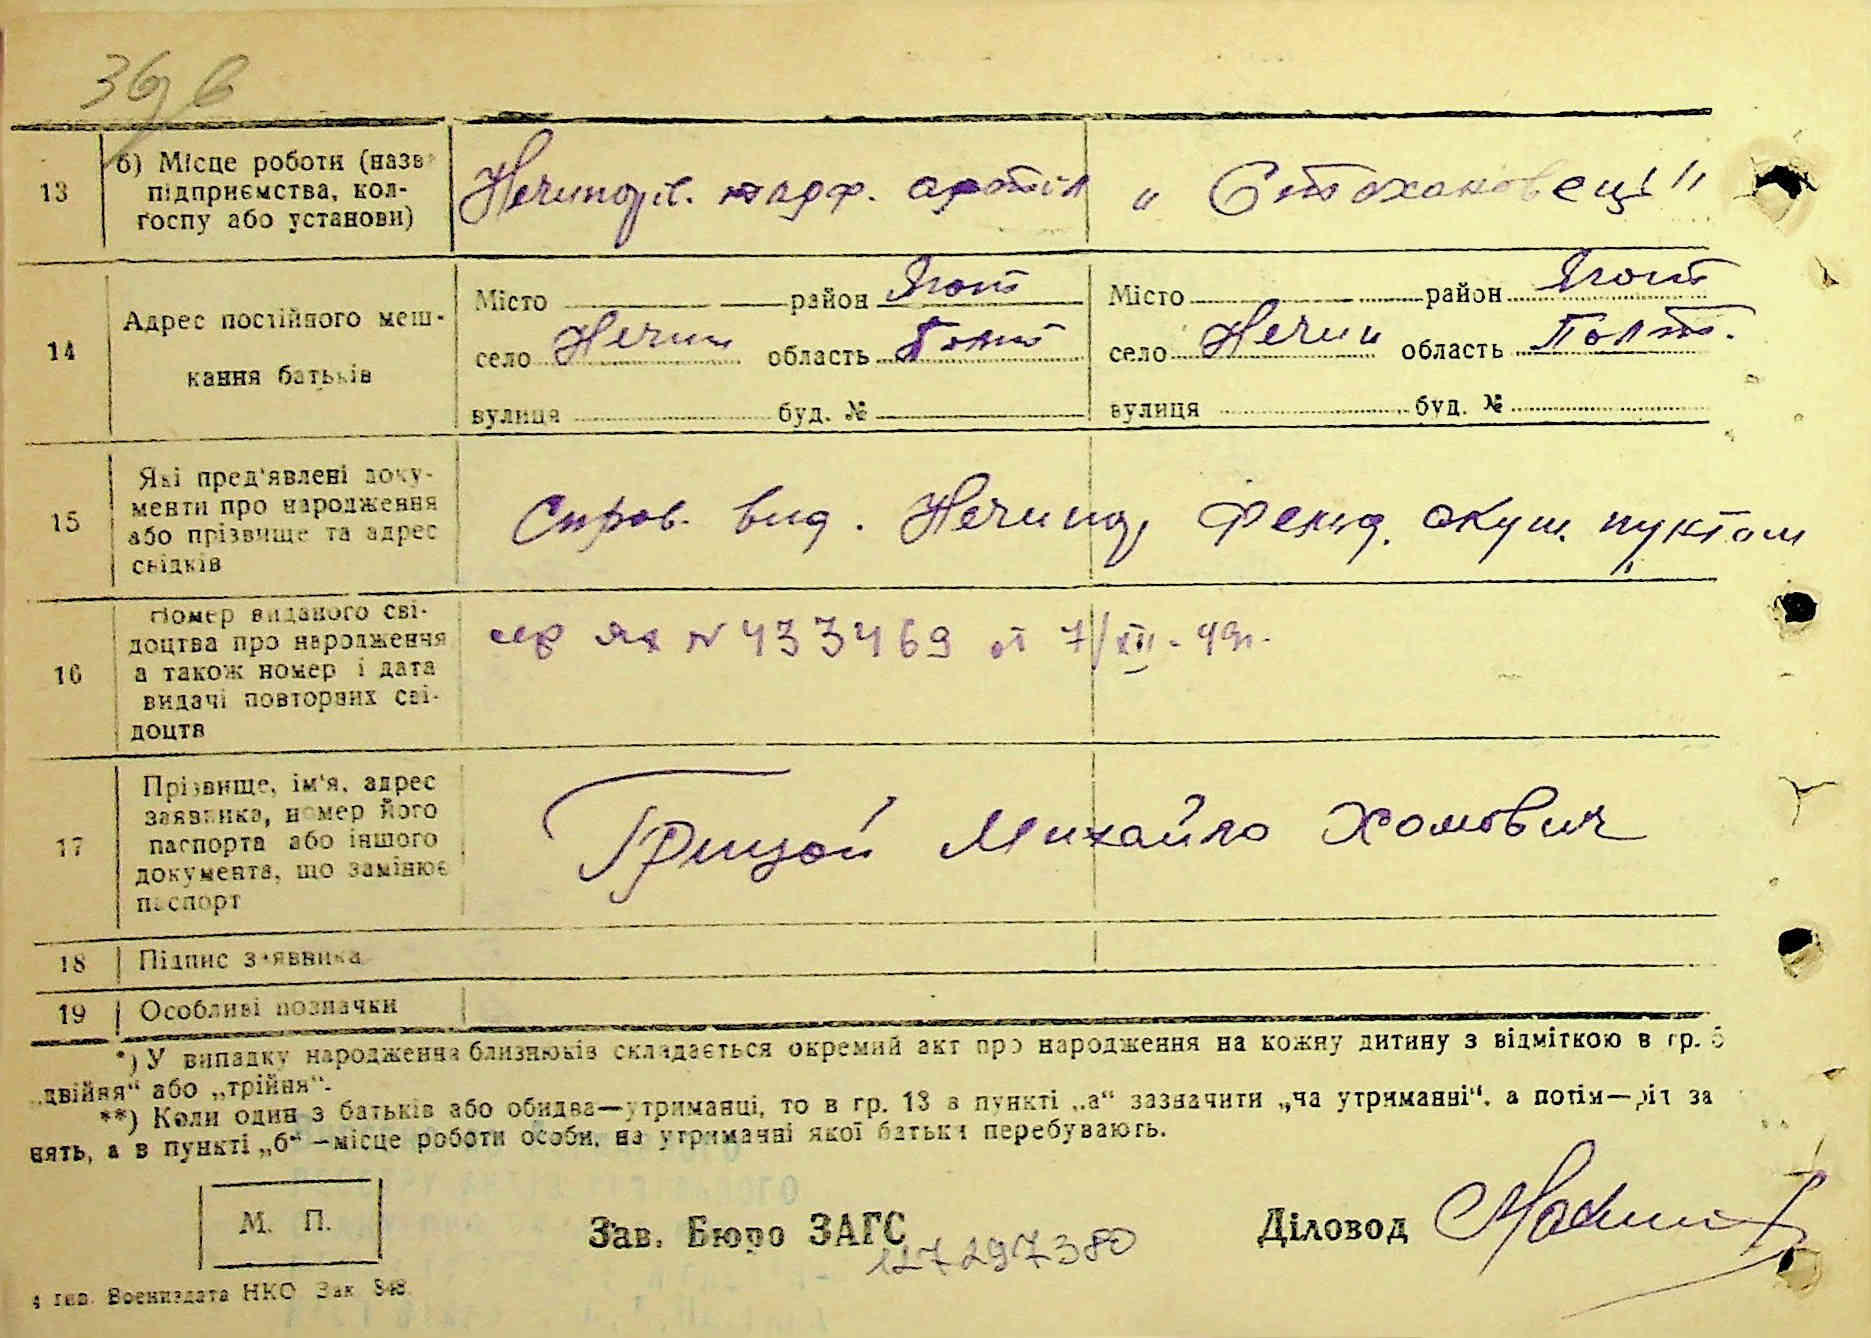 36
13 б) Місце роботи (назва
підприємства, кол-
госпу або установи)
артіл „ Стахановець"
14 Адрес постійного меш-
кання батьків
Місто район Ягот
село Нечип область Полт
вулиця буд. №
Місто район Ягот
село Нечип область Полт.
вулиця буд. №
15 Які пред'явлені доку-
менти про народження
або прізвище та адрес
свідків
Справ. вид. Нечипор. Фельд. акуш. пунктом
16 Номер виданого сві-
доцтва про народження
а також номер і дата
видачі повторних сві-
доцтв
ЯХ № 433469 от 7/XII-49г.
17 Прізвище, ім'я, адрес
заявника, номер його
паспорта або іншого
документа, що замінює
паспорт
Грицай Михайло Хомович
18 Підпис заявника
19 Особливі позначки
*) У випадку народження близнюків складається окремий акт про народження на кожну дитину з відміткою в гр. 5
„двійня“ або „трійня“.
**) Коли один з батьків або обидва—утриманці, то в гр. 13 в пункті „а“ зазначити „на утриманні“, а потім—рід за
нять, а в пункті „б“—місце роботи особи, на утриманні якої батьки перебувають.
М. П.
Зав. Бюро ЗАГС
Діловод
127297380
4 тип. Воениздата НКО Зак 848.